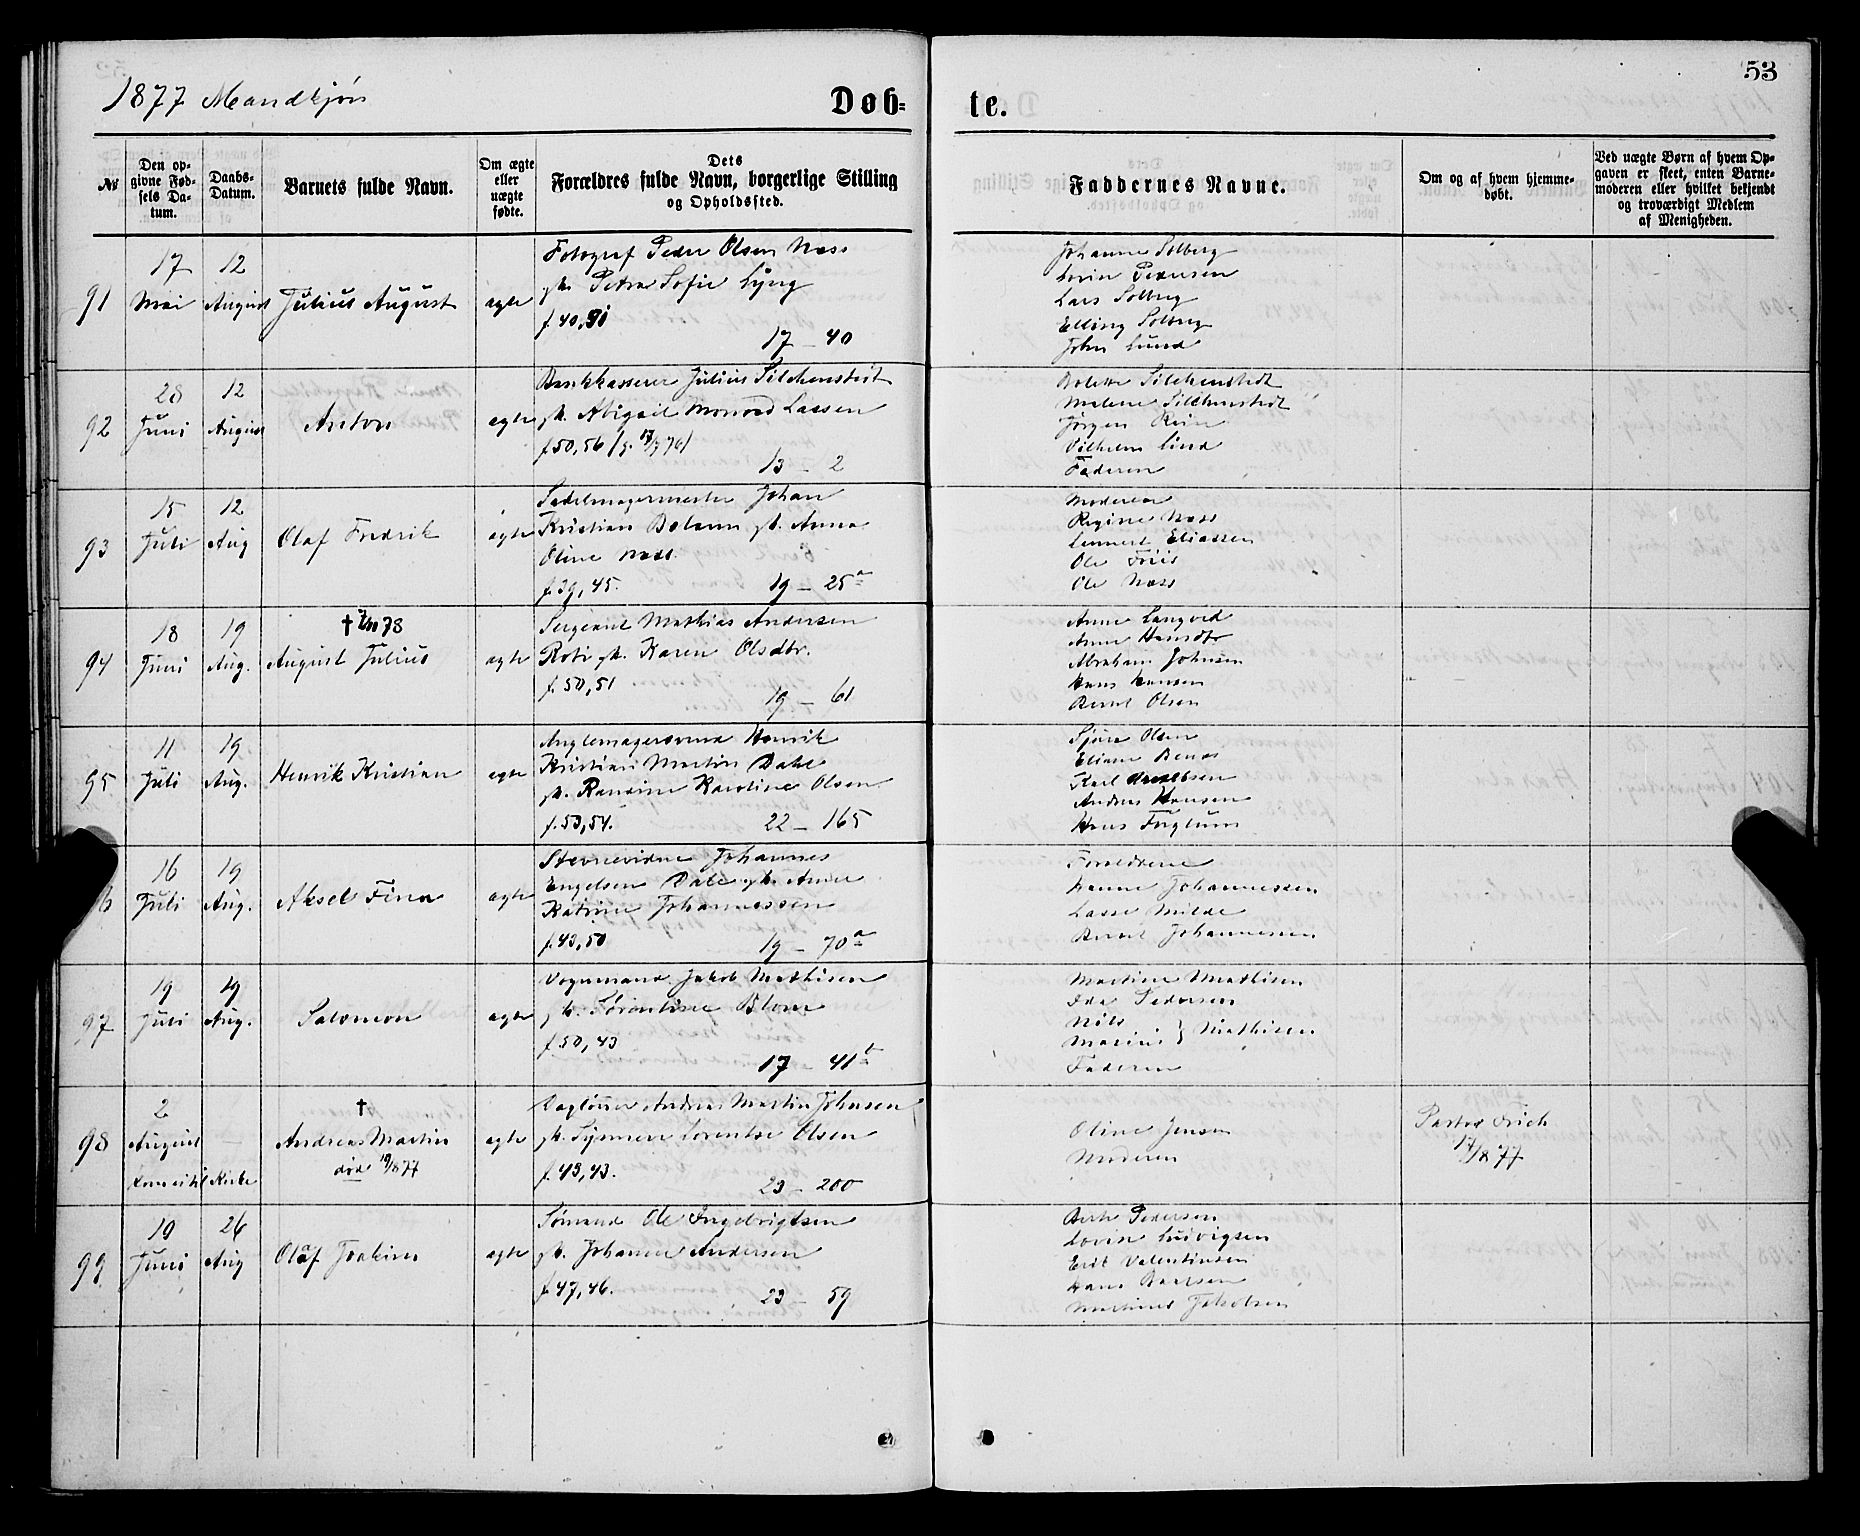 1877 Mandkjøn
Døb=
te.
53
№
Den op-
givne Fød-
sels Da-
tum.
Daabs-
Datum.
Barnets fulde Navn.
Om ægte
eller
uægte
fødte.
Dets
Forældres fulde Navn, borgerlige Stilling
og Opholdssted.
Faddernes Navne.
Om og af hvem hjemme-
døbt.
Ved uægte Børn af hvem Op-
gaven er skeet, enten Barne-
moderen eller hvilket bekjendt
og troværdigt Medlem
af Menigheden.
91
17
Mai
12
August
Julius August
ægte
Fotograf Peder Olsen Næss
gh. Petra Sofie Lyng
f. 40,
17 – 40
Johanne Solberg
Lovise Pedersen
Lars Solberg
Elling Solberg
John Lund
92
28
Juni
12
August
Anton
ægte
Bankkasserer Julius Silchenstedt
gh. Abigail Monrad Lassen
f. 50, 56
13 – 2
Bolette Silchenstedt
Malene Silchenstedt
Jørgen
Vilhelm Lind
Faderen
93
15
Juli
12
Aug
Olaf Fredrik
ægte
Sadelmagermester Johan
Kristian gh. Anna
Oline Næss
f. 39, 45.
19 – 25a
Moderen
Regine Næss
Lennert Eliassen
Ole Friis
Ole Næss
94
18
Juni
19
Aug.
† 78
August Julius
ægte
Sergeant Mathias Andersen
gh. Karen Olsdtr.
f. 50, 51
19 – 61
Anne Langved
Anne Hansdtr
Abraham Johnsen
Hans Hansen
Bernt Olsen
95
11
Juli
19
Aug.
Henrik Kristian
ægte
Henrik
Kristian Martin Dahl
gh. Karoline Olsen
f. 53, 54.
22 – 165
Olsen
Karl
Andreas Hansen
Hans
6
16
Juli
19
Aug.
Aksel
ægte
Stevnevidne Johannes
Engelsen Dale gh. Anne
Katrine Johannessen
f. 43, 50
19 – 70a
Forældrene
Hanne Johannessen
Lasse Milde
Bernt Johannessen
97
19
Juli
19
Aug.
Salomon
ægte
Vognmand Jakob Mathisen
gh. Sørentine Blom
f. 50, 43
17 – 41b
Martine Mathisen
Ida Pedersen
Nils
Marius } Mathisen
Faderen
98
2
August
Domcitil Kirke
†
Andreas Martin
død 19/8 77
ægte
Dagløner Andreas Martin Johnsen
gh. Lorentse Olsen
f. 43, 43.
23 – 200
Oline Jensen
Moderen
Pastor Erich
17/8 77
99
19
Juni
26
Aug
Olaf Joakim
ægte
Sømand Ole Ingebrigtsen
gh. Johanne Andersen
f. 47, 46.
23 – 59
Berte Pedersen
Lovise Ludvigsen
Erik Valentinsen
Hans
Martinus Jakobsen